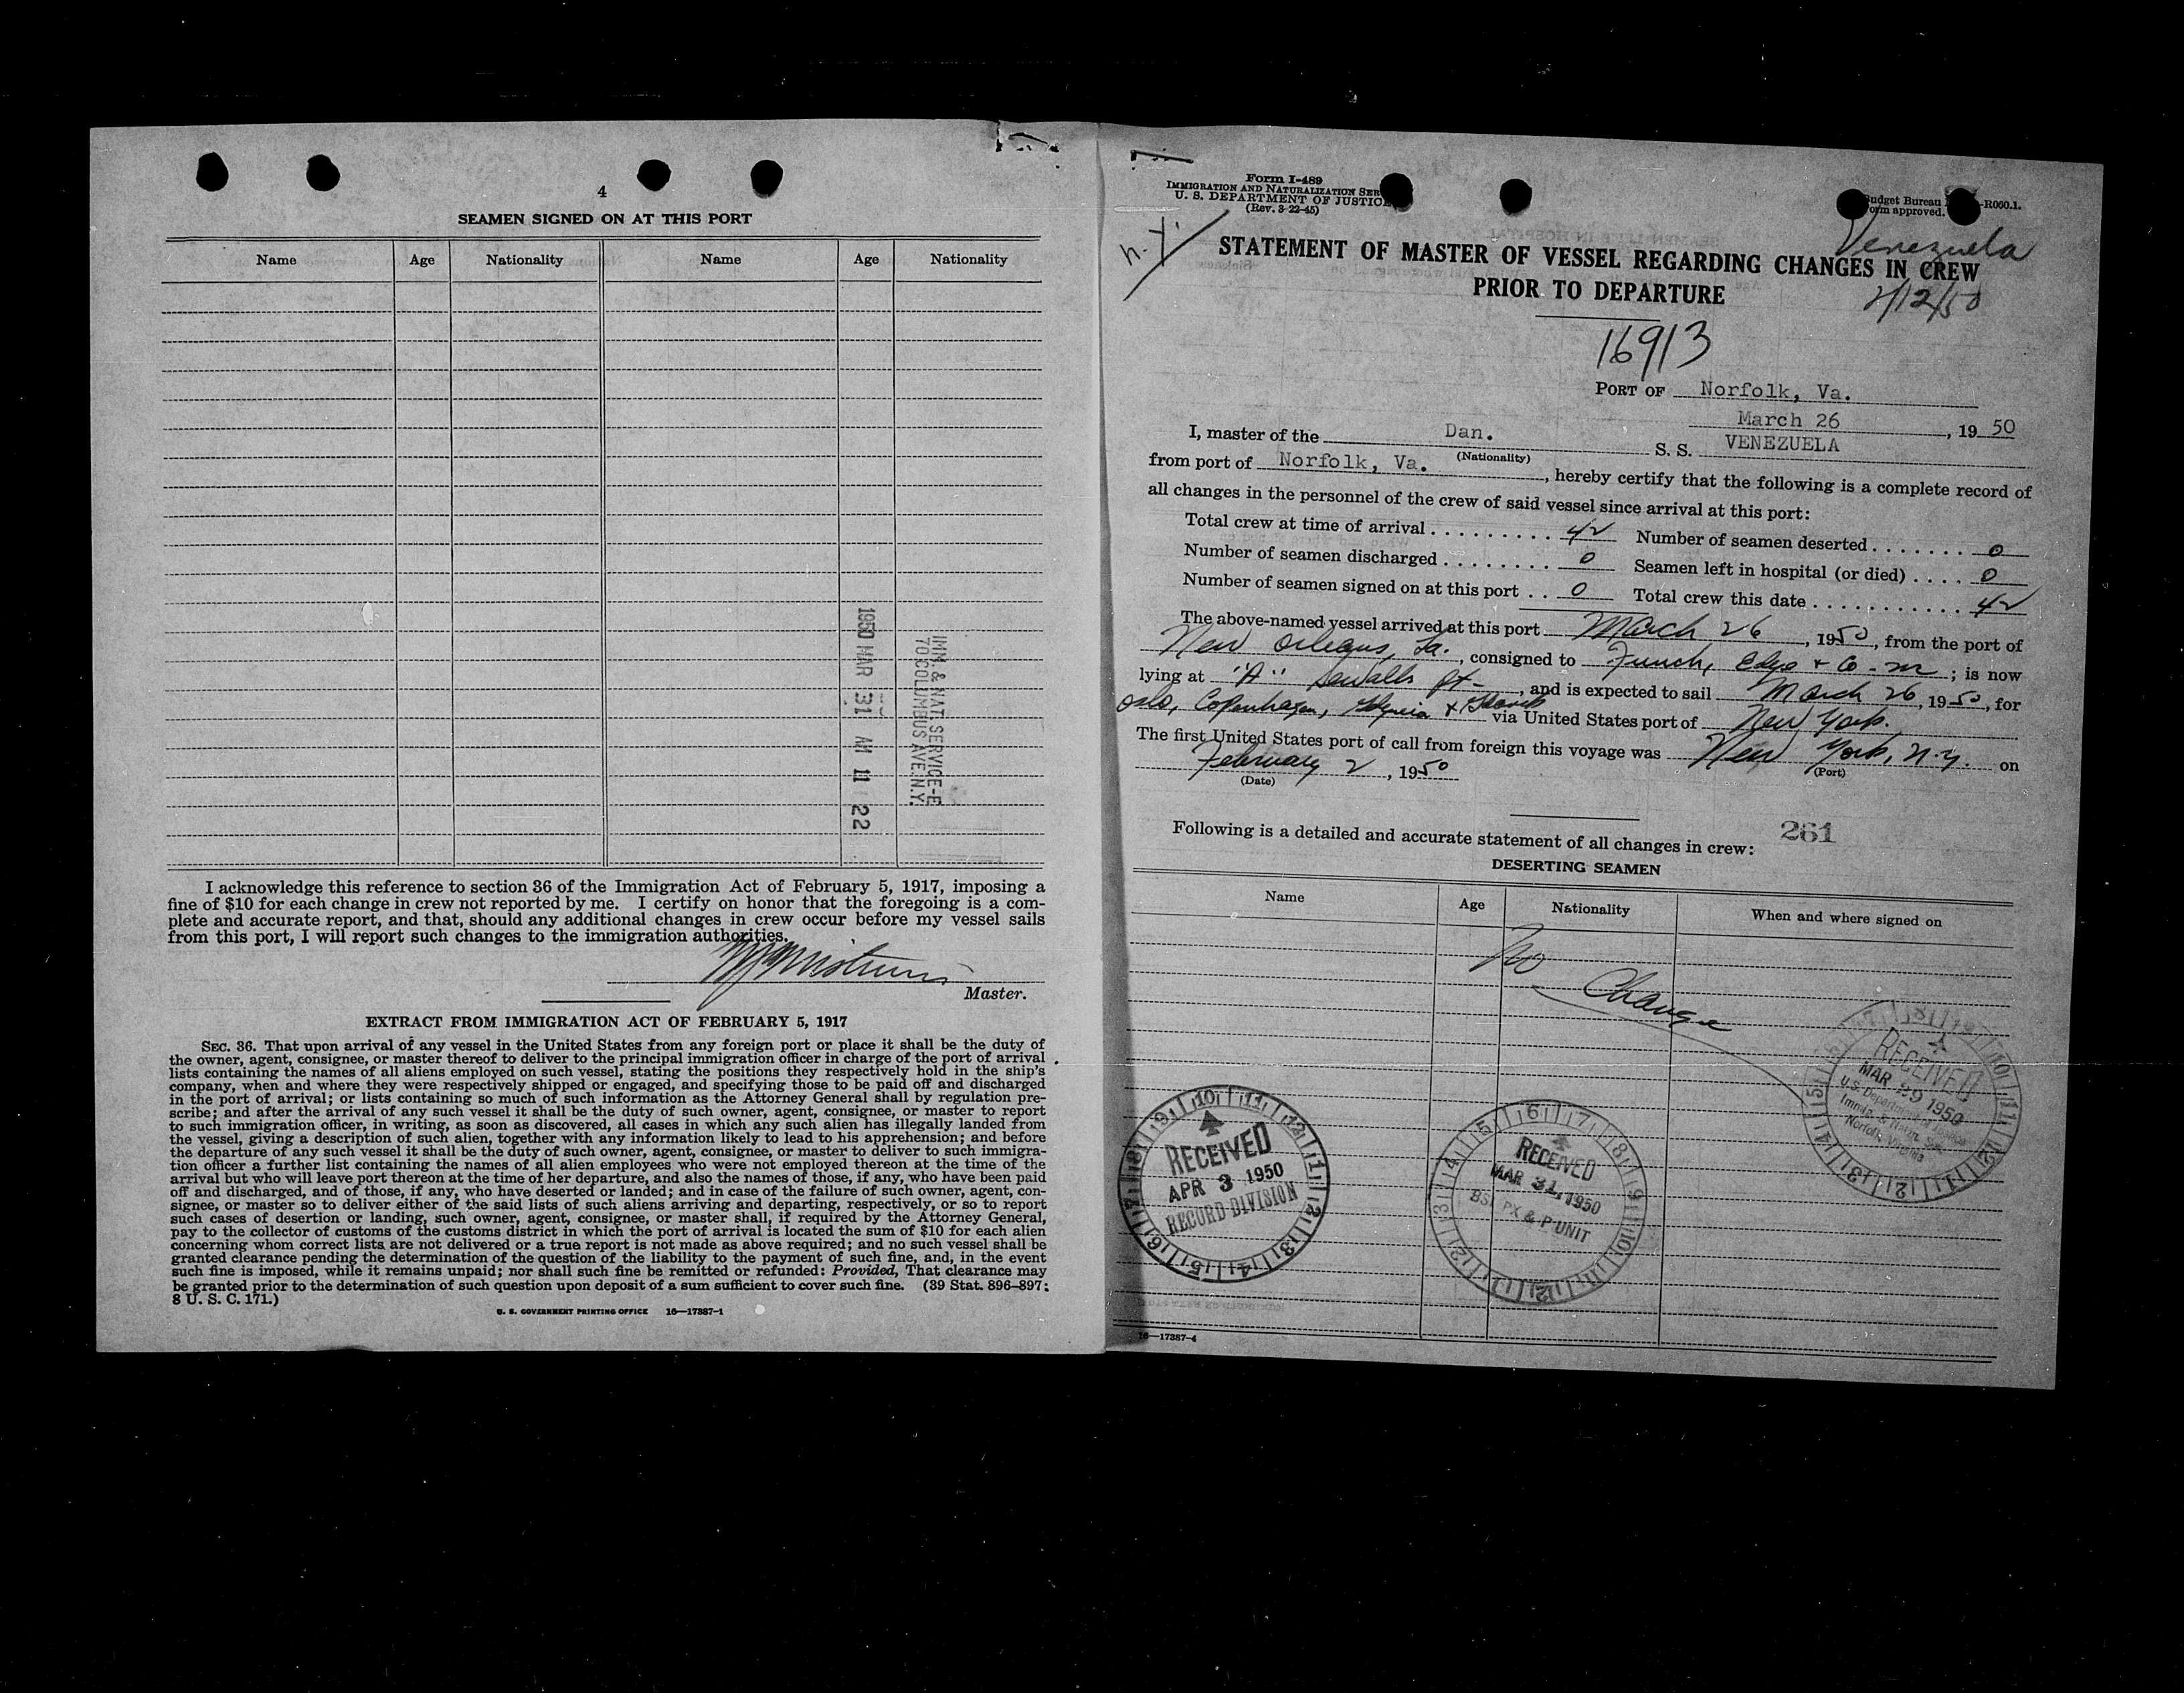 4
SEAMEN SIGNED ON AT THIS PORT
Name Age Nationality Name Age Nationality
1950 MAR 31 AM 11 22
IMM. & NAT. SERVICE-E
70 COLUMBUS AVE. N.Y.
I acknowledge this reference to section 36 of the Immigration Act of February 5, 1917, imposing a
fine of $10 for each change in crew not reported by me. I certify on honor that the foregoing is a com-
plete and accurate report, and that, should any additional changes in crew occur before my vessel sails
from this port, I will report such changes to the immigration authorities.
Master.
EXTRACT FROM IMMIGRATION ACT OF FEBRUARY 5, 1917
SEC. 36. That upon arrival of any vessel in the United States from any foreign port or place it shall be the duty of
the owner, agent, consignee, or master thereof to deliver to the principal immigration officer in charge of the port of arrival
lists containing the names of all aliens employed on such vessel, stating the positions they respectively hold in the ship's
company, when and where they were respectively shipped or engaged, and specifying those to be paid off and discharged
in the port of arrival; or lists containing so much of such information as the Attorney General shall by regulation pre-
scribe; and after the arrival of any such vessel it shall be the duty of such owner, agent, consignee, or master to report
to such immigration officer, in writing, as soon as discovered, all cases in which any such alien has illegally landed from
the vessel, giving a description of such alien, together with any information likely to lead to his apprehension; and before
the departure of any such vessel it shall be the duty of such owner, agent, consignee, or master to deliver to such immigra-
tion officer a further list containing the names of all alien employees who were not employed thereon at the time of the
arrival but who will leave port thereon at the time of her departure, and also the names of those, if any, who have been paid
off and discharged, and of those, if any, who have deserted or landed; and in case of the failure of such owner, agent, con-
signee, or master so to deliver either of the said lists of such aliens arriving and departing, respectively, or so to report
such cases of desertion or landing, such owner, agent, consignee, or master shall, if required by the Attorney General,
pay to the collector of customs of the customs district in which the port of arrival is located the sum of $10 for each alien
concerning whom correct lists are not delivered or a true report is not made as above required; and no such vessel shall be
granted clearance pending the determination of the question of the liability to the payment of such fine, and, in the event
such fine is imposed, while it remains unpaid; nor shall such fine be remitted or refunded: Provided, That clearance may
be granted prior to the determination of such question upon deposit of a sum sufficient to cover such fine. (39 Stat. 896–897;
8 U. S. C. 171.)
U. S. GOVERNMENT PRINTING OFFICE 16—17387-1
Form I-489
IMMIGRATION AND NATURALIZATION SER
U. S. DEPARTMENT OF JUSTICE
(Rev. 3-22-45)
Budget Bureau -R060.1.
Form approved.
N.Y.
Venezuela
STATEMENT OF MASTER OF VESSEL REGARDING CHANGES IN CREW
PRIOR TO DEPARTURE
2/12/50
16913
PORT OF Norfolk, Va.
March 26, 19 50
I, master of the Dan. S. S. VENEZUELA
(Nationality)
from port of Norfolk, Va., hereby certify that the following is a complete record of
all changes in the personnel of the crew of said vessel since arrival at this port:
Total crew at time of arrival . . . . . . . . . 42 Number of seamen deserted . . . . . . . 0
Number of seamen discharged . . . . . . . . 0 Seamen left in hospital (or died) . . . . 0
Number of seamen signed on at this port . . 0 Total crew this date . . . . . . . . . . . 42
The above-named vessel arrived at this port March 26, 1950, from the port of
New Orleans, La., consigned to Funch, Edye & Co.; is now
lying at "A" Sewalls Pt., and is expected to sail March 26, 1950, for
Oslo, Copenhagen, Gdynia & via United States port of New York.
The first United States port of call from foreign this voyage was New York, N.Y. on
February 2, 1950
(Date) (Port)
261
Following is a detailed and accurate statement of all changes in crew:
DESERTING SEAMEN
Name Age Nationality When and where signed on
No Change
RECEIVED
MAR 29 1950
U.S. Department of Justice
Immig. & Natzn. Ser.
Norfolk, Virginia
RECEIVED
APR 3 1950
RECORD DIVISION
RECEIVED
MAR 31 1950
BSI PX & P UNIT
16—17387-4